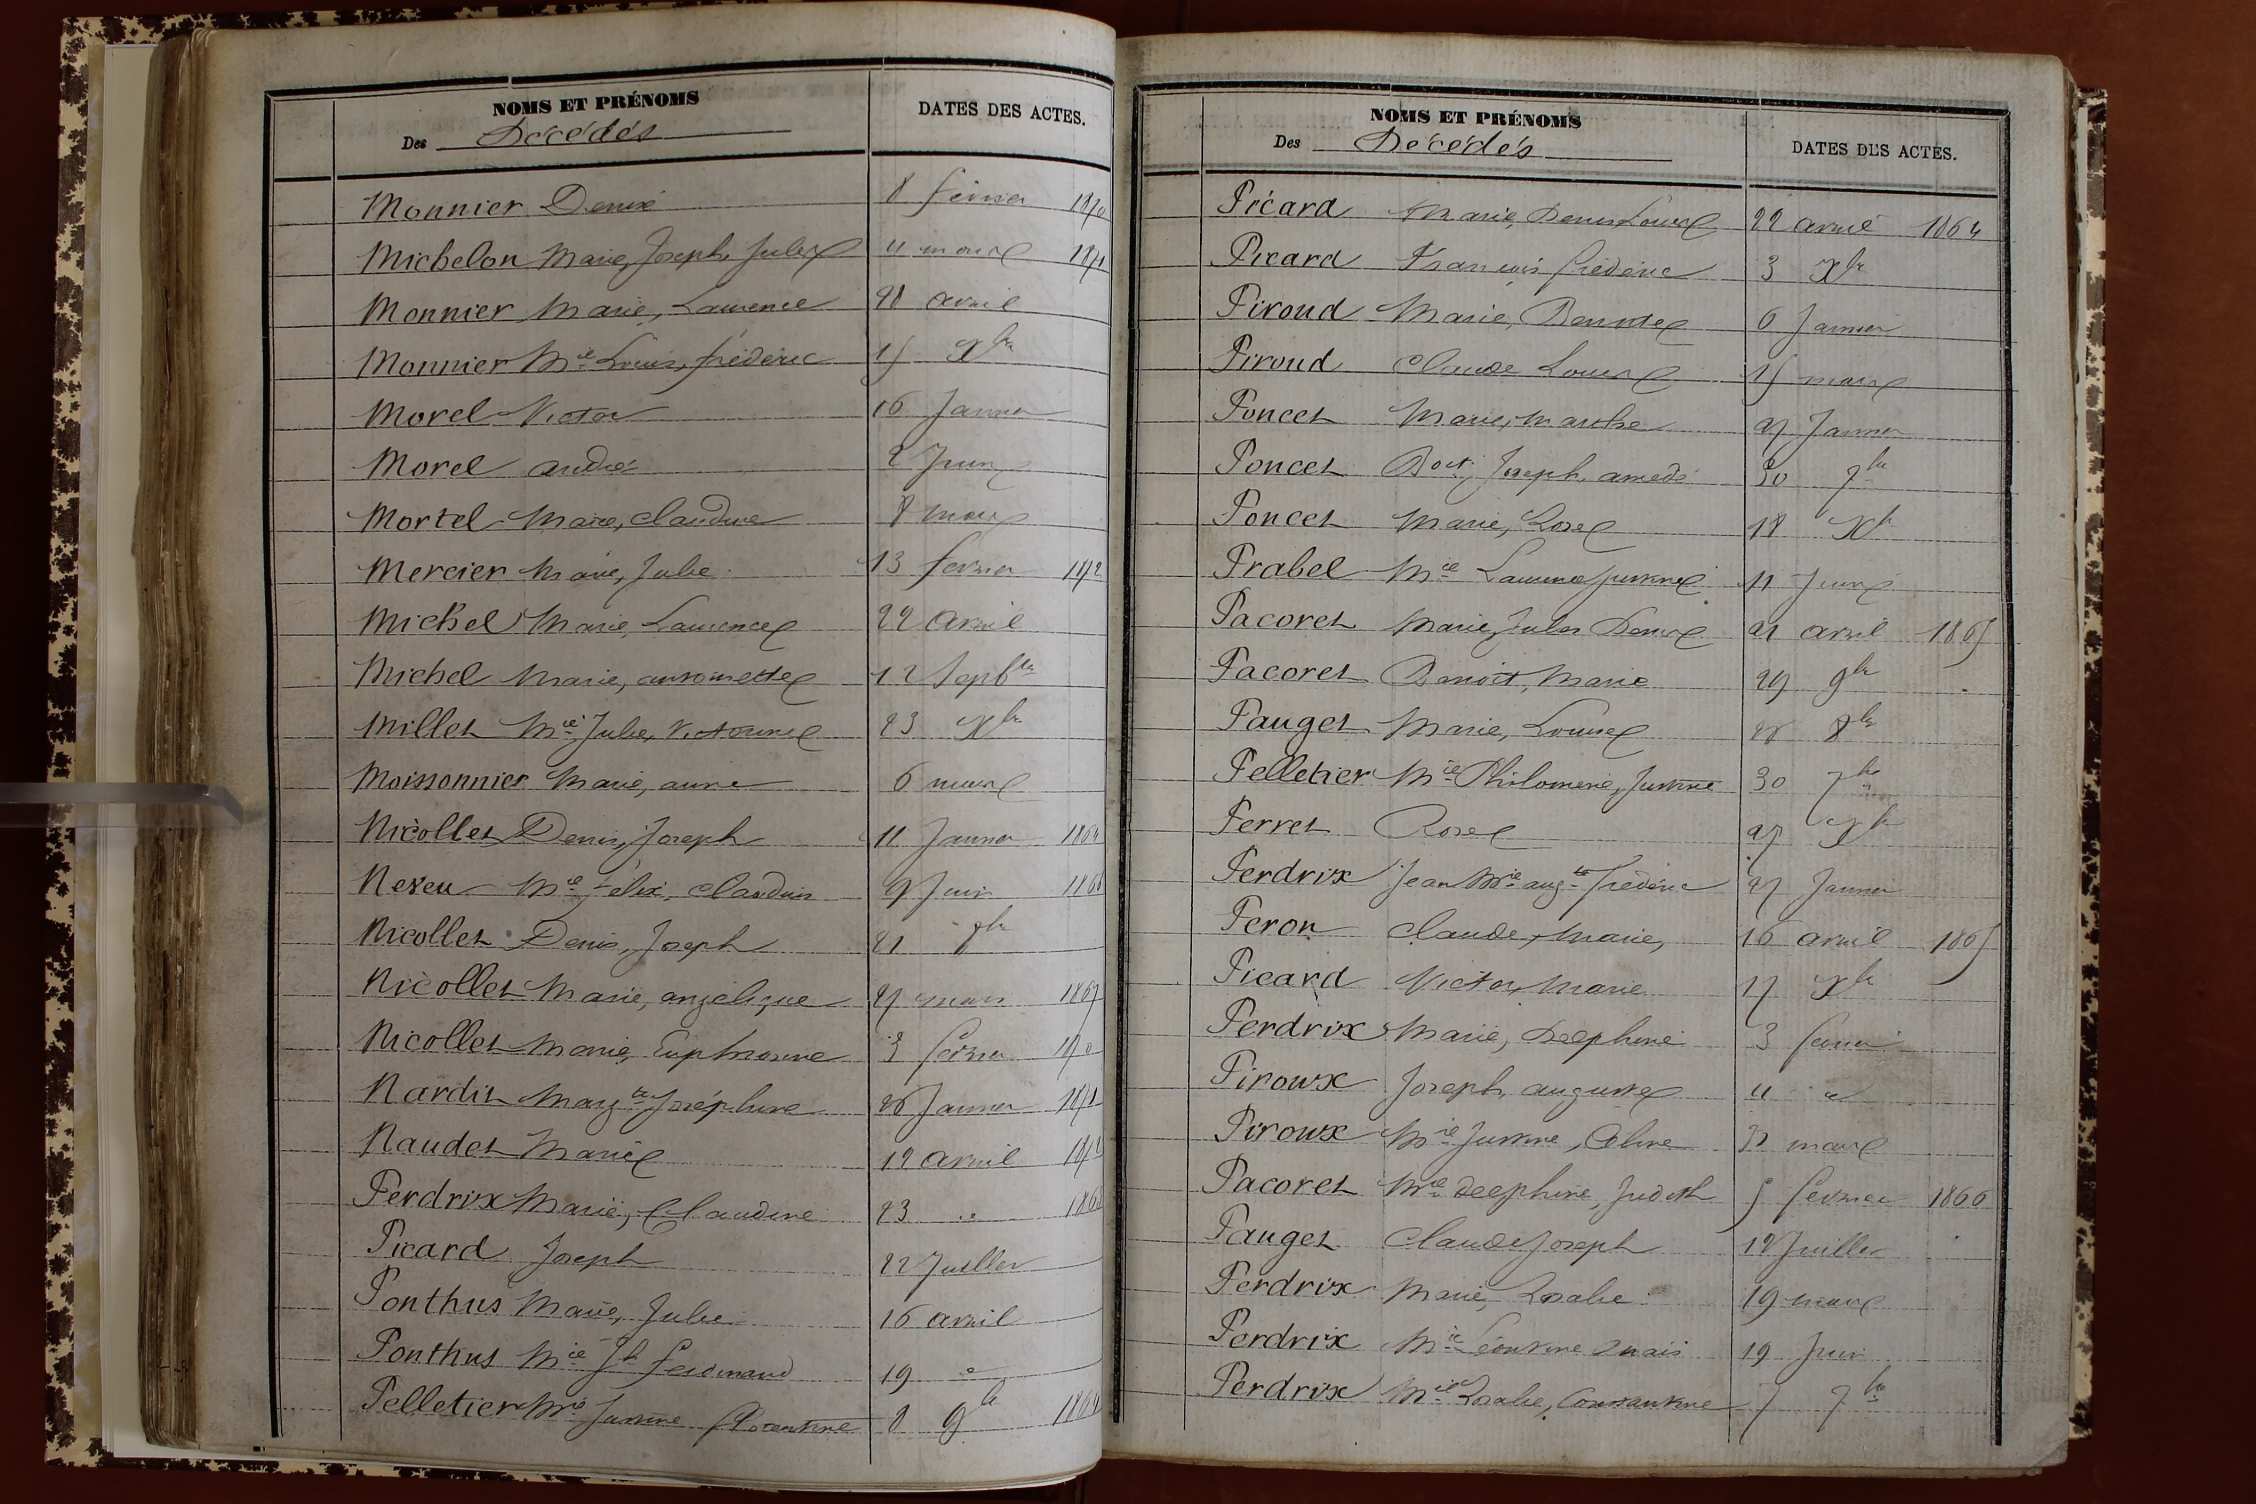 NOMS ET PRÉNOMS
Des Décédés
DATES DES ACTES.
Monnier Denise 8 février 1870
Michelon Marie, Joseph, Jules 4 mars 1871
Monnier Marie, Laurence 28 avril
Monnier Mie Louis, frédéric 15 Xbre
Morel Victor 16 Janvier
Morel André 2 Juin
Mortel Marie, Claudine 8 mars
Mercier Marie, Julie 13 fevrier 1872
Michel Marie, Laurence 22 avril
Michel Marie, antoinette 12 Septbre
Millet Mie Julie, Victorine 23 Xbre
Moissonnier Marie, anne 6 mars
Nicollet Denis, Joseph 11 Janvier 1864
Neveu Mie Félix, Claudius 9 Juin 1866
Nicollet Denis, Joseph 21
Nicollet Marie, angélique 27 mars 1867
Nicollet Marie, Euphrosine 3 février 1870
Nardit Margte Joséphine 26 Janvier 1871
Naudet Marie 12 avril 1872
Perdrix Marie, Claudine 23 " 1863
Picard Joseph 22 Juillet
Ponthus Marie, Julie 16 avril
Ponthus Mie Jh ferdinand 19 "
Pelletier Mie Justine florentine 8 9bre 1864
NOMS ET PRÉNOMS
Des Décédés
DATES DES ACTES.
Picard Marie, Denis Louis 22 avril 1864
Picard François frédéric 3 Xbre
Piroud Marie, Benoite 6 Janvier
Piroud Claude Louis 15 mars
Poncet Marie, Marthe 27 Janvier
Poncet Boit Joseph, amédé 30 7bre
Poncet Marie, Rose 18 Xbre
Prabel Mie Laurence Justine 11 Juin
Pacoret Marie, Jules Denis 21 avril 1865
Pacoret Benoit, Marie 29 9bre
Pauget Marie, Louise 28 8bre
Pelletier Mie Philomène, Justine 30 7bre
Perret Rose 27 Xbre
Perdrix Jean Mie augte frédéric 27 Janvier
Peron Claude, Marie, 16 avril 1865
Picard Victor, Marie 17 Xbre
Perdrix Marie, Delphine 3 fevrier
Piroux Joseph, auguste 4 "
Piroux Mie Justine, Céline mars
Pacoret Mie Delphine, Judith 5 fevrier 1866
Pauget Claude Joseph 12 Juillet
Perdrix Marie, Rosalie 19 mars
Perdrix Mie Léontine Anaïs 19 Juin
Perdrix Mie Rosalie, Constantine 7 7bre